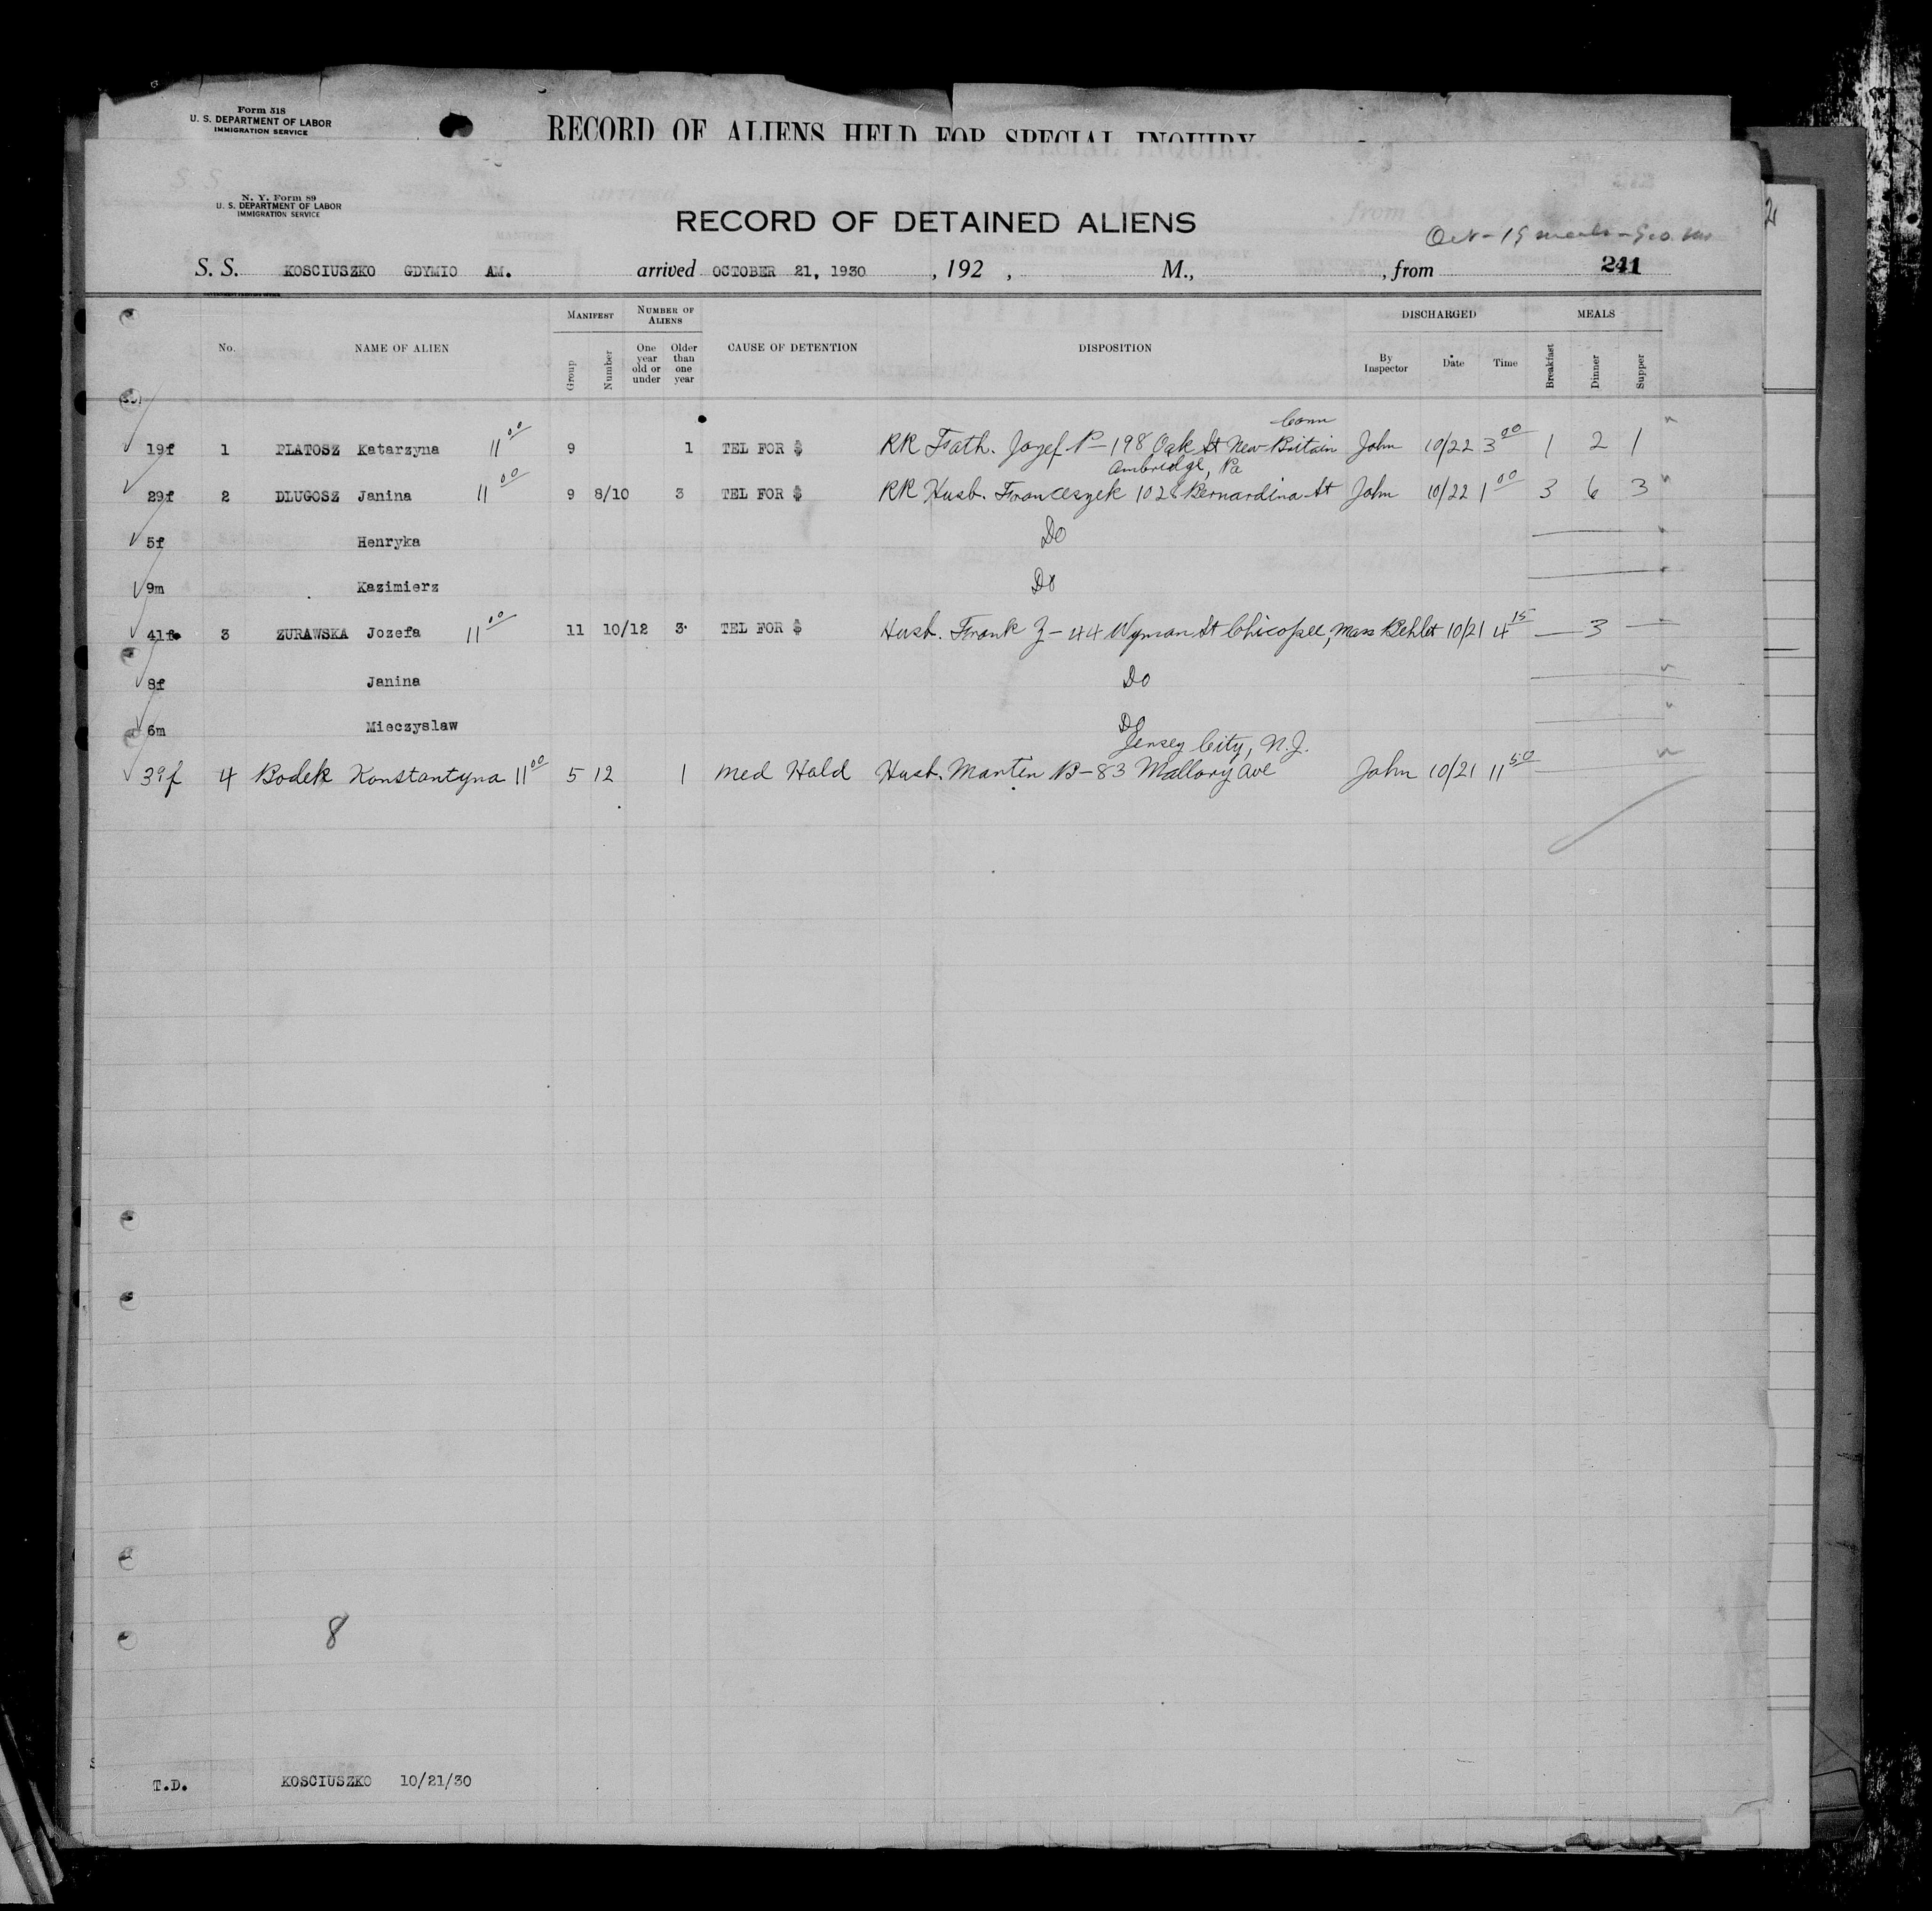 Form 518
U. S. DEPARTMENT OF LABOR
IMMIGRATION SERVICE
RECORD OF ALIENS HELD FOR SPECIAL INQUIRY
N. Y. Form 89
U. S. DEPARTMENT OF LABOR
IMMIGRATION SERVICE
RECORD OF DETAINED ALIENS
Oct - 19 meals -
S. S. KOSCIUSZKO GDYMIO AM. arrived OCTOBER 21, 1930 , 192 , M., , from 241
No. NAME OF ALIEN MANIFEST Group Number NUMBER OF ALIENS One year old or under Older than one year CAUSE OF DETENTION DISPOSITION DISCHARGED By Inspector Date Time MEALS Breakfast Dinner Supper
Conn
19f 1 PLATOSZ Katarzyna 11 00 9 1 TEL FOR $ RR Fath. Jozef P - 198 Oak St New Britain John 10/22 3 00 1 2 1
Ambridge, Pa
29f 2 DLUGOSZ Janina 11 00 9 8/10 3 TEL FOR $ RR Husb. Franceszek 1028 Bernardina St John 10/22 1 00 3 6 3
5f Henryka Do
9m Kazimierz Do
41f 3 ZURAWSKA Jozefa 11 00 11 10/12 3 TEL FOR $ Husb. Frank Z - 44 Wyman St Chicopee, Mass Behlet 10/21 4 15 — 3 —
8f Janina Do
6m Mieczyslaw Do
Jersey City, N.J.
39f 4 Bodek Konstantyna 11 00 5 12 1 Med Hold Husb. Manten B - 83 Mallory Ave John 10/21 11 50
8
T.D. KOSCIUSZKO 10/21/30